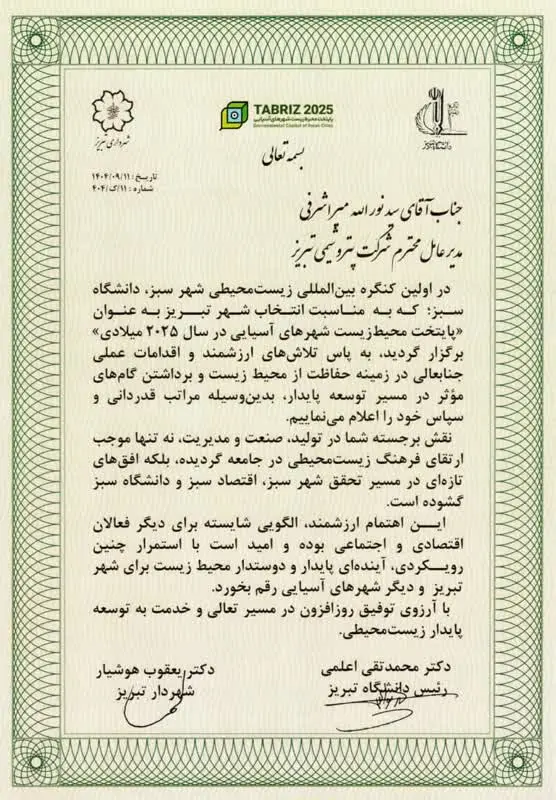 شهرداری تبریز
TABRIZ 2025
پایتخت محیط زیست شهرهای آسیایی
Environmental Capital of Asian Cities
دانشگاه تبریز
بسمه تعالی
تاریخ: ۱۴۰۴/۰۹/۱۱
شماره: ۱۱/ک/۴۰۴
جناب آقای سید نورالله میراشرفی
مدیرعامل محترم شرکت پتروشیمی تبریز
در اولین کنگره بین‌المللی زیست‌محیطی شهر سبز، دانشگاه
سبز؛ که به مناسبت انتخاب شهر تبریز به عنوان
«پایتخت محیط‌زیست شهرهای آسیایی در سال ۲۰۲۵ میلادی»
برگزار گردید، به پاس تلاش‌های ارزشمند و اقدامات عملی
جنابعالی در زمینه حفاظت از محیط زیست و برداشتن گام‌های
مؤثر در مسیر توسعه پایدار، بدین‌وسیله مراتب قدردانی و
سپاس خود را اعلام می‌نماییم.
نقش برجسته شما در تولید، صنعت و مدیریت، نه تنها موجب
ارتقای فرهنگ زیست‌محیطی در جامعه گردیده، بلکه افق‌های
تازه‌ای در مسیر تحقق شهر سبز، اقتصاد سبز و دانشگاه سبز
گشوده است.
ایـــن اهتمام ارزشمند، الگویی شایسته برای دیگر فعالان
اقتصادی و اجتماعی بوده و امید است با استمرار چنین
رویـــکردی، آینده‌ای پایدار و دوستدار محیط زیست برای شهر
تبریز و دیگر شهرهای آسیایی رقم بخورد.
با آرزوی توفیق روزافزون در مسیر تعالی و خدمت به توسعه
پایدار زیست‌محیطی.
دکتر محمدتقی اعلمی
رئیس دانشگاه تبریز
دکتر یعقوب هوشیار
شهردار تبریز